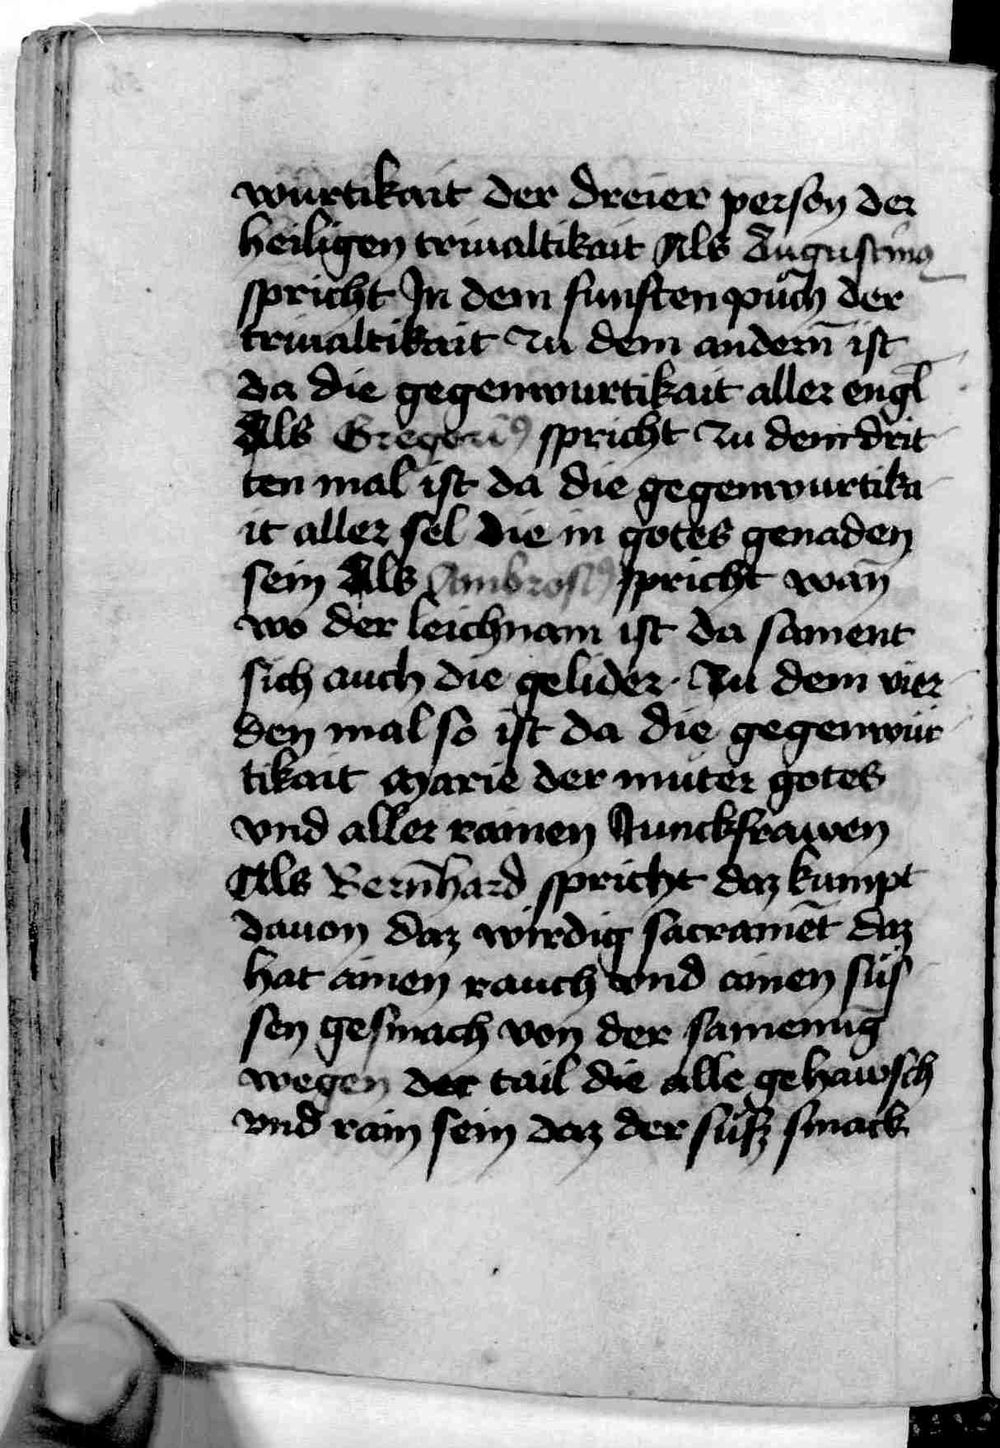 wurtikait der dreier person der
heiligen triualtikait Als Augustinus
spricht In dem funften puch der
triualtikait Zu dem andern̄ ist
da die gegenwurtikait aller engl
Als Gregoriꝰ spricht Zu dem drit
ten mal ist da die gegenwurtika
it aller sel die in gotes genaden
sein Als Ambrosiꝰ spricht wan̄
wo der leichnam ist da sament
sich auch die gelider · Zu dem vier
den mal so ist da die gegenwür
tikait Marie der muter gotes
vnd aller rainen Junckfrawen
Als Bern̄hard spricht daz kumpt
dauon daz wirdig sacramēt daz
hat ainen rauch vnd ainen süs
sen gesmach von der samenūg
wegen der tail die alle gehawsch
vnd rain sein daz der süß smack